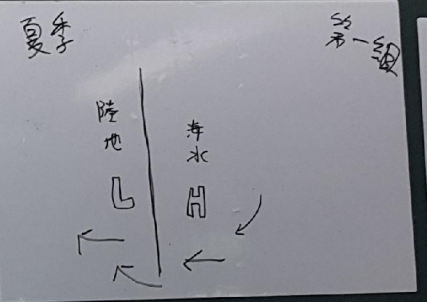 夏季
第一組
陸地
海水
L
H